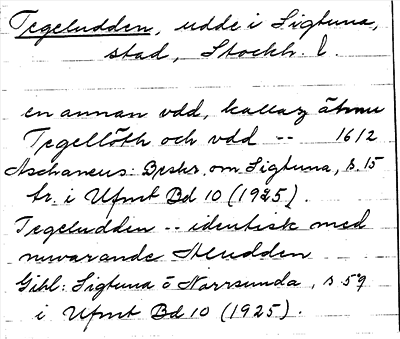 Tegeludden, udde i Sigtuna,
stad, Stockh. l.
en annan vdd, kallaz ähnu
Tegellöth och vdd -- 1612
Aschaneus: Beskr. om Sigtuna, s. 15
tr. i Ufmt Bd 10 (1925).
Tegeludden -- identisk med
nuvarande Aludden
Gihl: Sigtuna o Norrsunda, s 59
i Ufmt Bd 10 (1925).